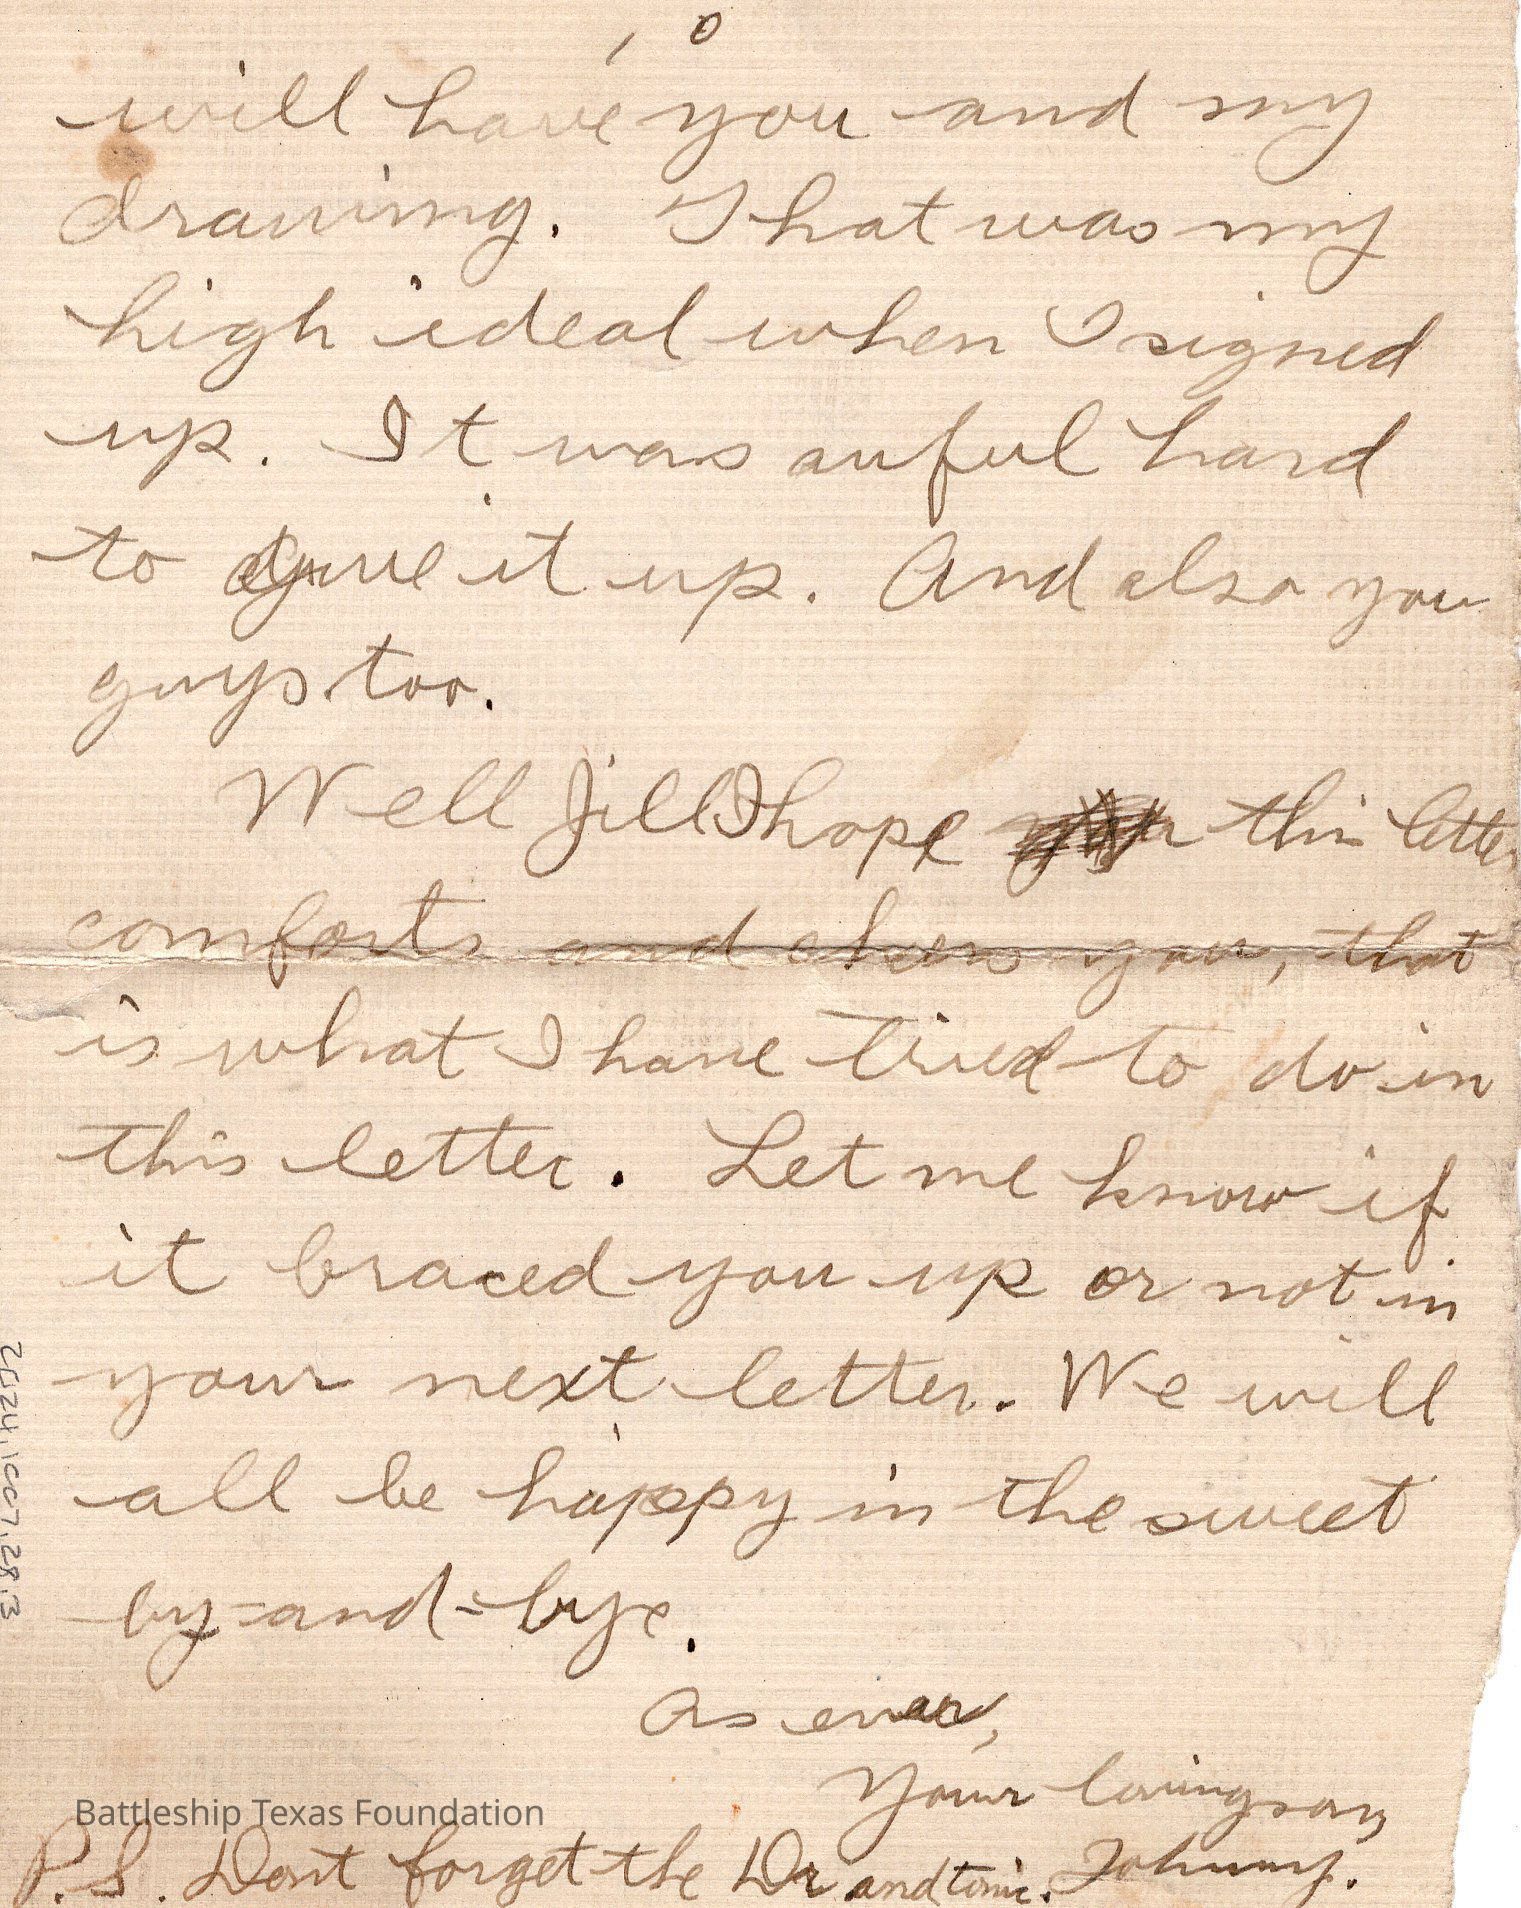 will have you and my
drawing. That was my
high ideal when I signed
up. It was awful hard
to give it up. And also you
guys too.
Well Jill I hope this letter
comforts and cheers you, that
is what I have tried to do in
this letter. Let me know if
it braced you up or not in
your next letter. We will
all be happy in the sweet
by-and-bye.
As ever,
Your loving son,
Johnny.
P.S. Dont forget the Dr and tonic.
Battleship Texas Foundation